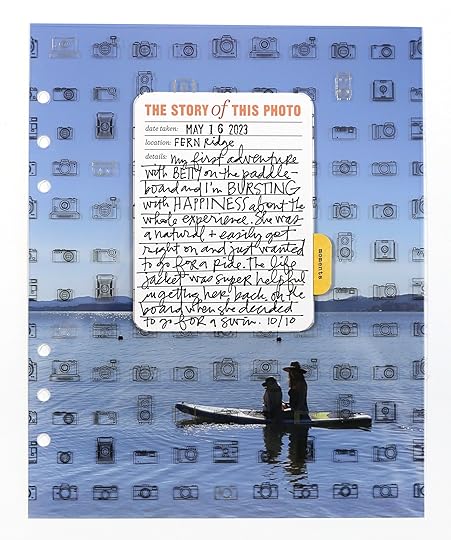 THE STORY of THIS PHOTO
date taken: MAY 16 2023
location: FERN Ridge
details: my first adventure
with BETTY on the paddle-
board and I'm BURSTING
with HAPPINESS about the
whole experience. She was
a natural + easily got
right on and just wanted
to go for a ride. The life
jacket was super helpful
in getting her back on the
board when she decided
to go for a swim. 10/10
moments